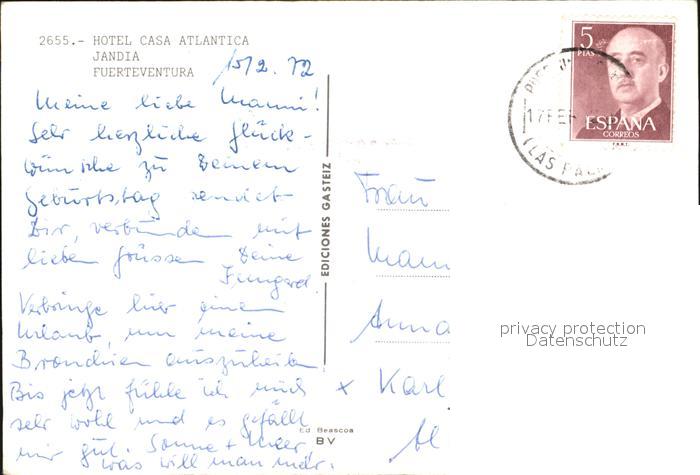 2655.- HOTEL CASA ATLANTICA
JANDIA
FUERTEVENTURA
15/2. 72
Meine liebe Mammi!
Sehr herzliche Glück-
wünsche zu Deinem
Geburtstag sendet
Dir, verbunden mit
lieben Grüssen Deine
Irmgard.
Verbringe hier einen
Urlaub, um meine
Bronchien auszuheilen
Bis jetzt fühle ich mich
sehr wohl und es gefällt
mir gut. Sonne + Meer,
was will man mehr.
EDICIONES GASTEIZ
Ed Beascoa
BV
5
PTAS
ESPAÑA
CORREOS
F.N.M.T.
17 FEB
(LAS PAL
Frau
Anna
x Karl
privacy protection
Datenschutz